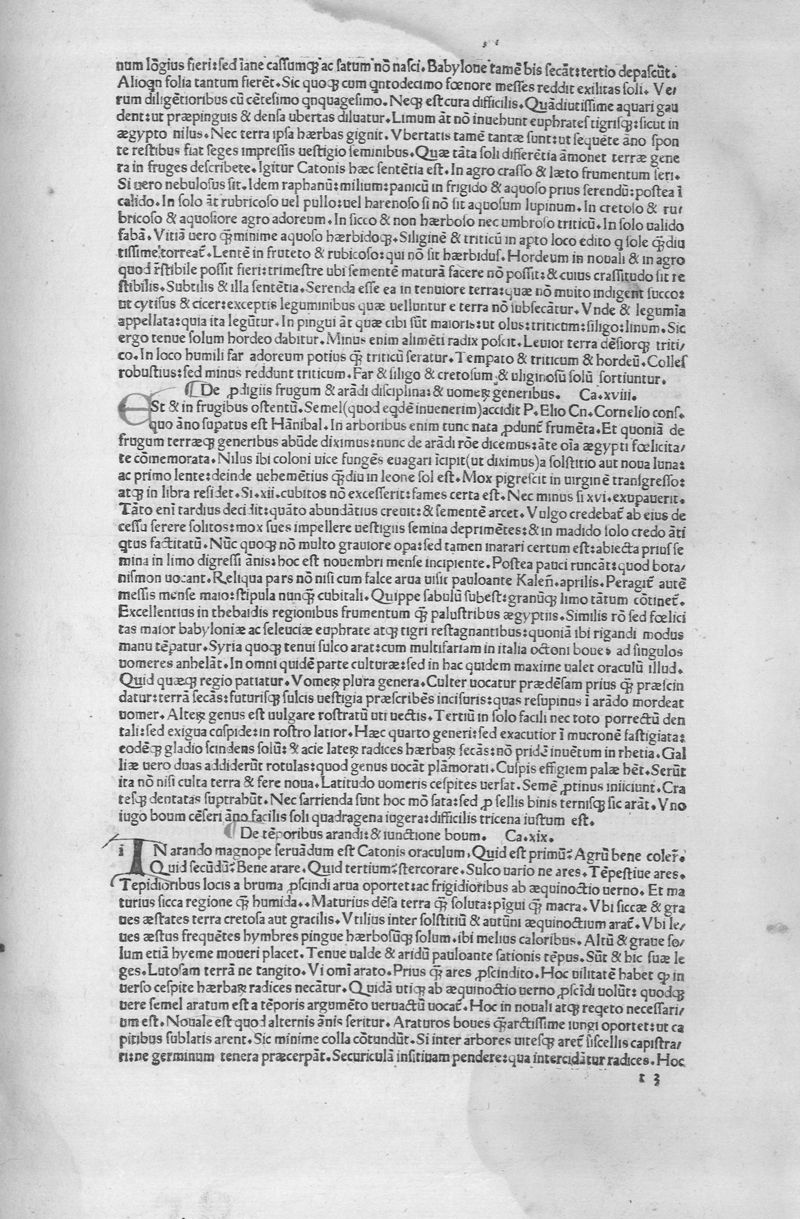 num lõgius fieri:sed iane cassumqȝ ac satum nõ nasci. Babylone tamẽ bis secãt:tertio depascũt.
Alioqn folia tantum fierẽt. Sic quoqȝ cum qntodecimo fœnore messes reddit exilitas soli. Ve/
rum diligẽtioribus cũ cẽtesimo qnquagesimo. Neqȝ est cura difficilis. Quãdiutissime aquari gau
dent:ut præpinguis & densa ubertas diluatur. Limum ãt nõ inuehunt euphrates tigrisqȝ:sicut in
ægypto nilus. Nec terra ipsa hærbas gignit. Vbertatis tamẽ tantæ sunt:ut sequẽte ãno spon
te restibus fiat seges impressis uestigio seminibus. Quæ tãta soli differẽtia ãmonet terræ gene
ra in fruges describete. Igitur Catonis hæc sentẽtia est. In agro crasso & læto frumentum seri.
Si uero nebulosus sit. Idem raphanũ:milium:panicũ in frigido & aquoso prius serendũ:postea ĩ
calido. In solo ãt rubricoso uel pullo:uel harenoso si nõ sit aquosum lupinum. In cretoso & ru/
bricoso & aquosiore agro adoreum. In sicco & non hærboso nec umbroso triticũ. In solo ualido
fabã. Vitiã uero qȝ minime aquoso hærbidoqȝ. Siliginẽ & triticũ in apto loco edito q sole qȝdiu
tissime torreat̃. Lentẽ in fruteto & rubicoso:qui nõ sit hærbidus. Hordeum in nouali & in agro
quod r̃stibile possit fieri:trimestre ubi sementẽ maturã facere nõ possit:& cuius crassitudo sit re
stibilis. Subtilis & illa sentẽtia. Serenda esse ea in tenuiore terra:quæ nõ multo indigent succo:
ut cytisus & cicer:exceptis leguminibus quæ uelluntur e terra nõ subsecãtur. Vnde & legumĩa
appellata:quia ita legũtur. In pingui ãt quæ cibi sũt maioris:ut olus:triticum:siligo:linum. Sic
ergo tenue solum hordeo dabitur. Minus enim alimẽti radix poscit. Leuior terra dẽsiorqȝ triti/
co. In loco humili far adoreum potius qȝ triticũ seratur. Tempato & triticum & hordeũ. Colles
robustius:sed minus reddunt triticum. Far & siligo & cretosum & uliginosũ solũ sortiuntur.
¶ De ꝓdigiis frugum & arãdi disciplina:& uomeꝝ generibus. Ca.xviii.
ESt & in frugibus ostentũ. Semel(quod eqdẽ inuenerim)accidit P. Elio Cn. Cornelio cons.
quo ãno supatus est Hãnibal. In arboribus enim tunc nata ꝓdunt̃ frumẽta. Et quoniã de
frugum terræqȝ generibus abũde diximus:nunc de arãdi rõe dicemus:ãte oĩa ægypti fœlicita/
te cõmemorata. Nilus ibi coloni uice fungẽs euagari ĩcipit(ut diximus)a solstitio aut noua luna:
ac primo lente:deinde uehemẽtius qȝdiu in leone sol est. Mox pigrescit in uirginẽ trãsgresso:
atqȝ in libra residet. Si.xii.cubitos nõ excesserit:fames certa est. Nec minus si xvi.exupauerit.
Tãto enĩ tardius decidit:quãto abundãtius creuit:& sementẽ arcet. Vulgo credebat̃ ab eius de
cessu serere solitos:mox sues impellere uestigiis semina deprimẽtes:& in madido solo credo ãti
qtus factitatũ. Nũc quoqȝ nõ multo grauiore opa:sed tamen inarari certum est:abiecta prius se
mina in limo digressi ãnis:hoc est nouembri mense incipiente. Postea pauci runcãt:quod bota/
nismon uocant. Reliqua pars nõ nisi cum falce arua uisit pauloante Kaleñ.aprilis. Peragit̃ autẽ
messis mense maio:stipula nunqȝ cubitali. Quippe sabulũ subest:granũqȝ limo tãtum cõtinet̃.
Excellentius in thebaidis regionibus frumentum qȝ palustribus ægyptiis. Similis rõ sed fœlici
tas maior babyloniæ ac seleuciæ euphrate atqȝ tigri restagnantibus:quoniã ibi rigandi modus
manu tẽpatur. Syria quoqȝ tenui sulco arat:cum multifariam in italia octoni boues ad singulos
uomeres anhelãt. In omni quidẽ parte culturæ:sed in hac quidem maxime ualet oraculũ illud.
Quid quæqȝ regio patiatur. Vomeꝝ plura genera. Culter uocatur prædẽsam prius qȝ præscin
datur:terrã secãs:futurisqȝ sulcis uestigia præscribẽs incisuris:quas resupinus ĩ arãdo mordeat
uomer. Alteꝝ genus est uulgare rostratũ uti uectis. Tertiũ in solo facili nec toto porrectũ den
tali:sed exigua cuspide:in rostro latior. Hæc quarto generi:sed exacutior ĩ mucronẽ fastigiata:
eodẽqȝ gladio scindens solũ:& acie lateꝝ radices hærbaꝝ secãs:nõ pridẽ inuẽtum in rhetia. Gal
liæ uero duas addiderũt rotulas:quod genus uocãt plãmorati. Cuspis effigiem palæ hẽt. Serũt
ita nõ nisi culta terra & fere noua. Latitudo uomeris cespites uersat. Semẽ ꝓtinus iniiciunt. Cra
tesqȝ dentatas suptrahũt. Nec sarrienda sunt hoc mõ sata:sed ꝓ sellis binis ternisqȝ sic arãt. Vno
iugo boum cẽseri ãno facilis soli quadragena iugera:difficilis tricena iustum est.
¶ De tẽporibus arandi:& iunctione boum. Ca.xix.
iN arando magnope seruãdum est Catonis oraculum, Quid est primũ? Agrũ bene coler̃.
Quid secũdũ? Bene arare. Quid tertium?stercorare. Sulco uario ne ares. Tẽpestiue ares.
Tepidioribus locis a bruma ꝓscindi arua oportet:ac frigidioribus ab æquinoctio uerno. Et ma
turius sicca regione qȝ humida.. Maturius dẽsa terra qȝ soluta:pĩgui qȝ macra. Vbi siccæ & gra
ues æstates terra cretosa aut gracilis. Vtilius inter solstitiũ & autũni æquinoctium arat̃. Vbi le/
ues æstus frequẽtes hymbres pingue hærbosũqȝ solum. ibi melius caloribus. Altũ & graue so/
lum etiã hyeme moueri placet. Tenue ualde & aridũ pauloante sationis tẽpus. Sũt & hic suæ le
ges. Lutosam terrã ne tangito. Vi omĩ arato. Prius qȝ ares ꝓscindito. Hoc utilitatẽ habet qȝ in
uerso cespite hærbaꝝ radices necãtur. Quidã utiqȝ ab æquinoctio uerno ꝓscĩdi uolũt: quodqȝ
uere semel aratum est a tẽporis argumẽto ueruactũ uocat̃. Hoc in nouali atqȝ reqeto necessari/
um est. Nouale est quod alternis ãnis seritur. Araturos boues qȝarctissime iungi oportet:ut ca
pitibus sublatis arent. Sic minime colla cõtundũt. Si inter arbores uitesqȝ aret̃ fiscellis capistra/
ri:ne germinum tenera præcerpãt. Securiculã insitiuam pendere:qua intercidãtur radices. Hoc
r 3